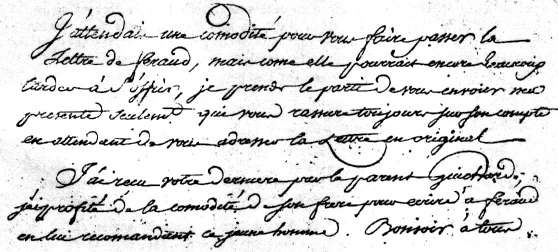 J'attendais une comodité pour vous faire passer la
Lettre de feraud, mais come elle pourrait encore beaucoup
tarder à s'offrir, je prends le parti de vous envoier ma
presente seulemt qui vous rassure toujours sur son compte
en attendant de vous adresser la Lettre en original
J'ai recu votre derniere par le parent Guichard,
j'ai profité de la comodité de son frere pour ecrire a feraud
en lui recomandant ce jeune homme. Bonsoir à tous